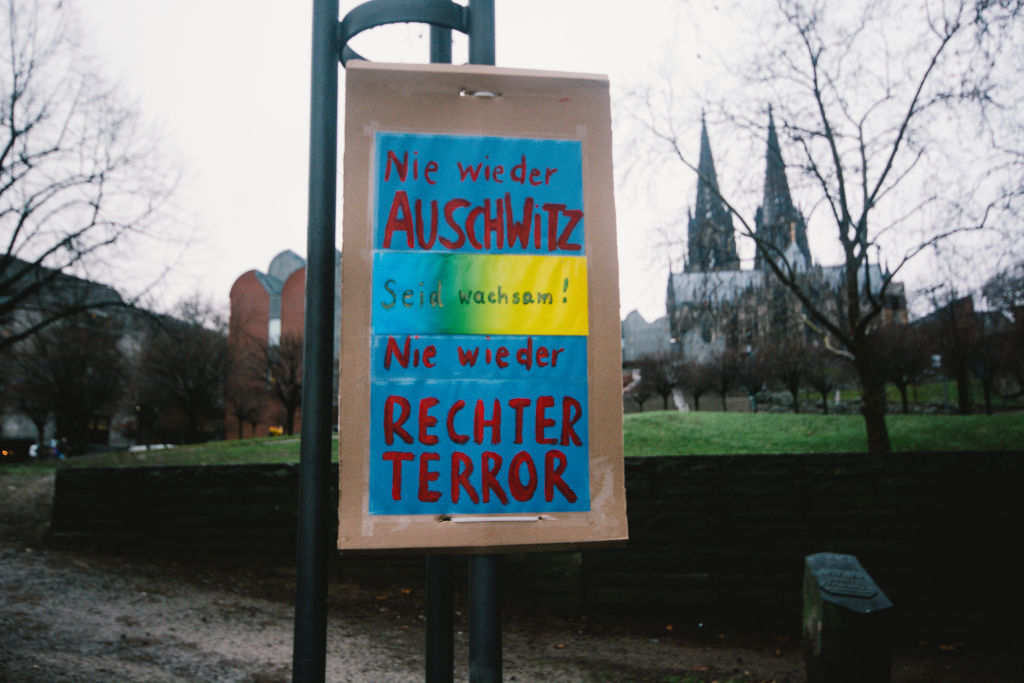 Nie wieder
AUSCHWITZ
Seid wachsam!
Nie wieder
RECHTER
TERROR